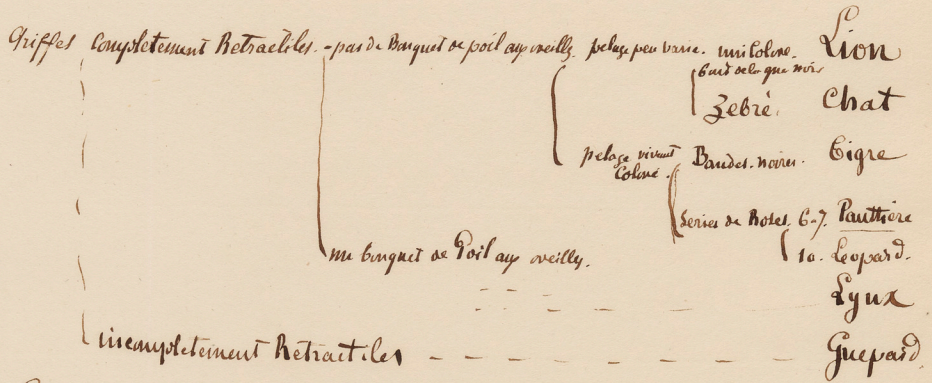 Griffes complètement Retractiles. - pas de Bouquet de poil aux oreilles pelage peu varié. unicolore. Lion
bout de la queue noir
Zebré. Chat
pelage vivement Bandes noires. Tigre
Coloré.
Series de Roses. 6-7. Panthère
un bouquet de Poil aux oreilles. 10. Leopard.
Lynx
incomplètement Retractiles Guepard